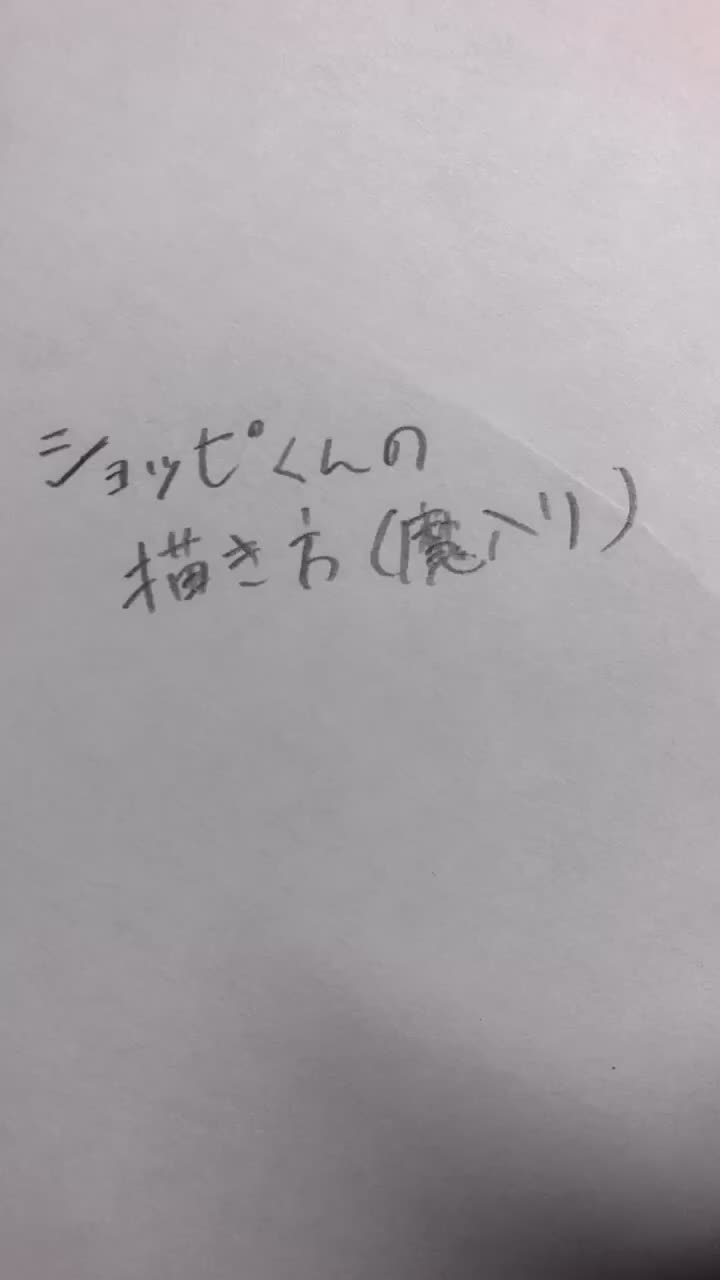 ショッピくんの
描き方(魔入り)